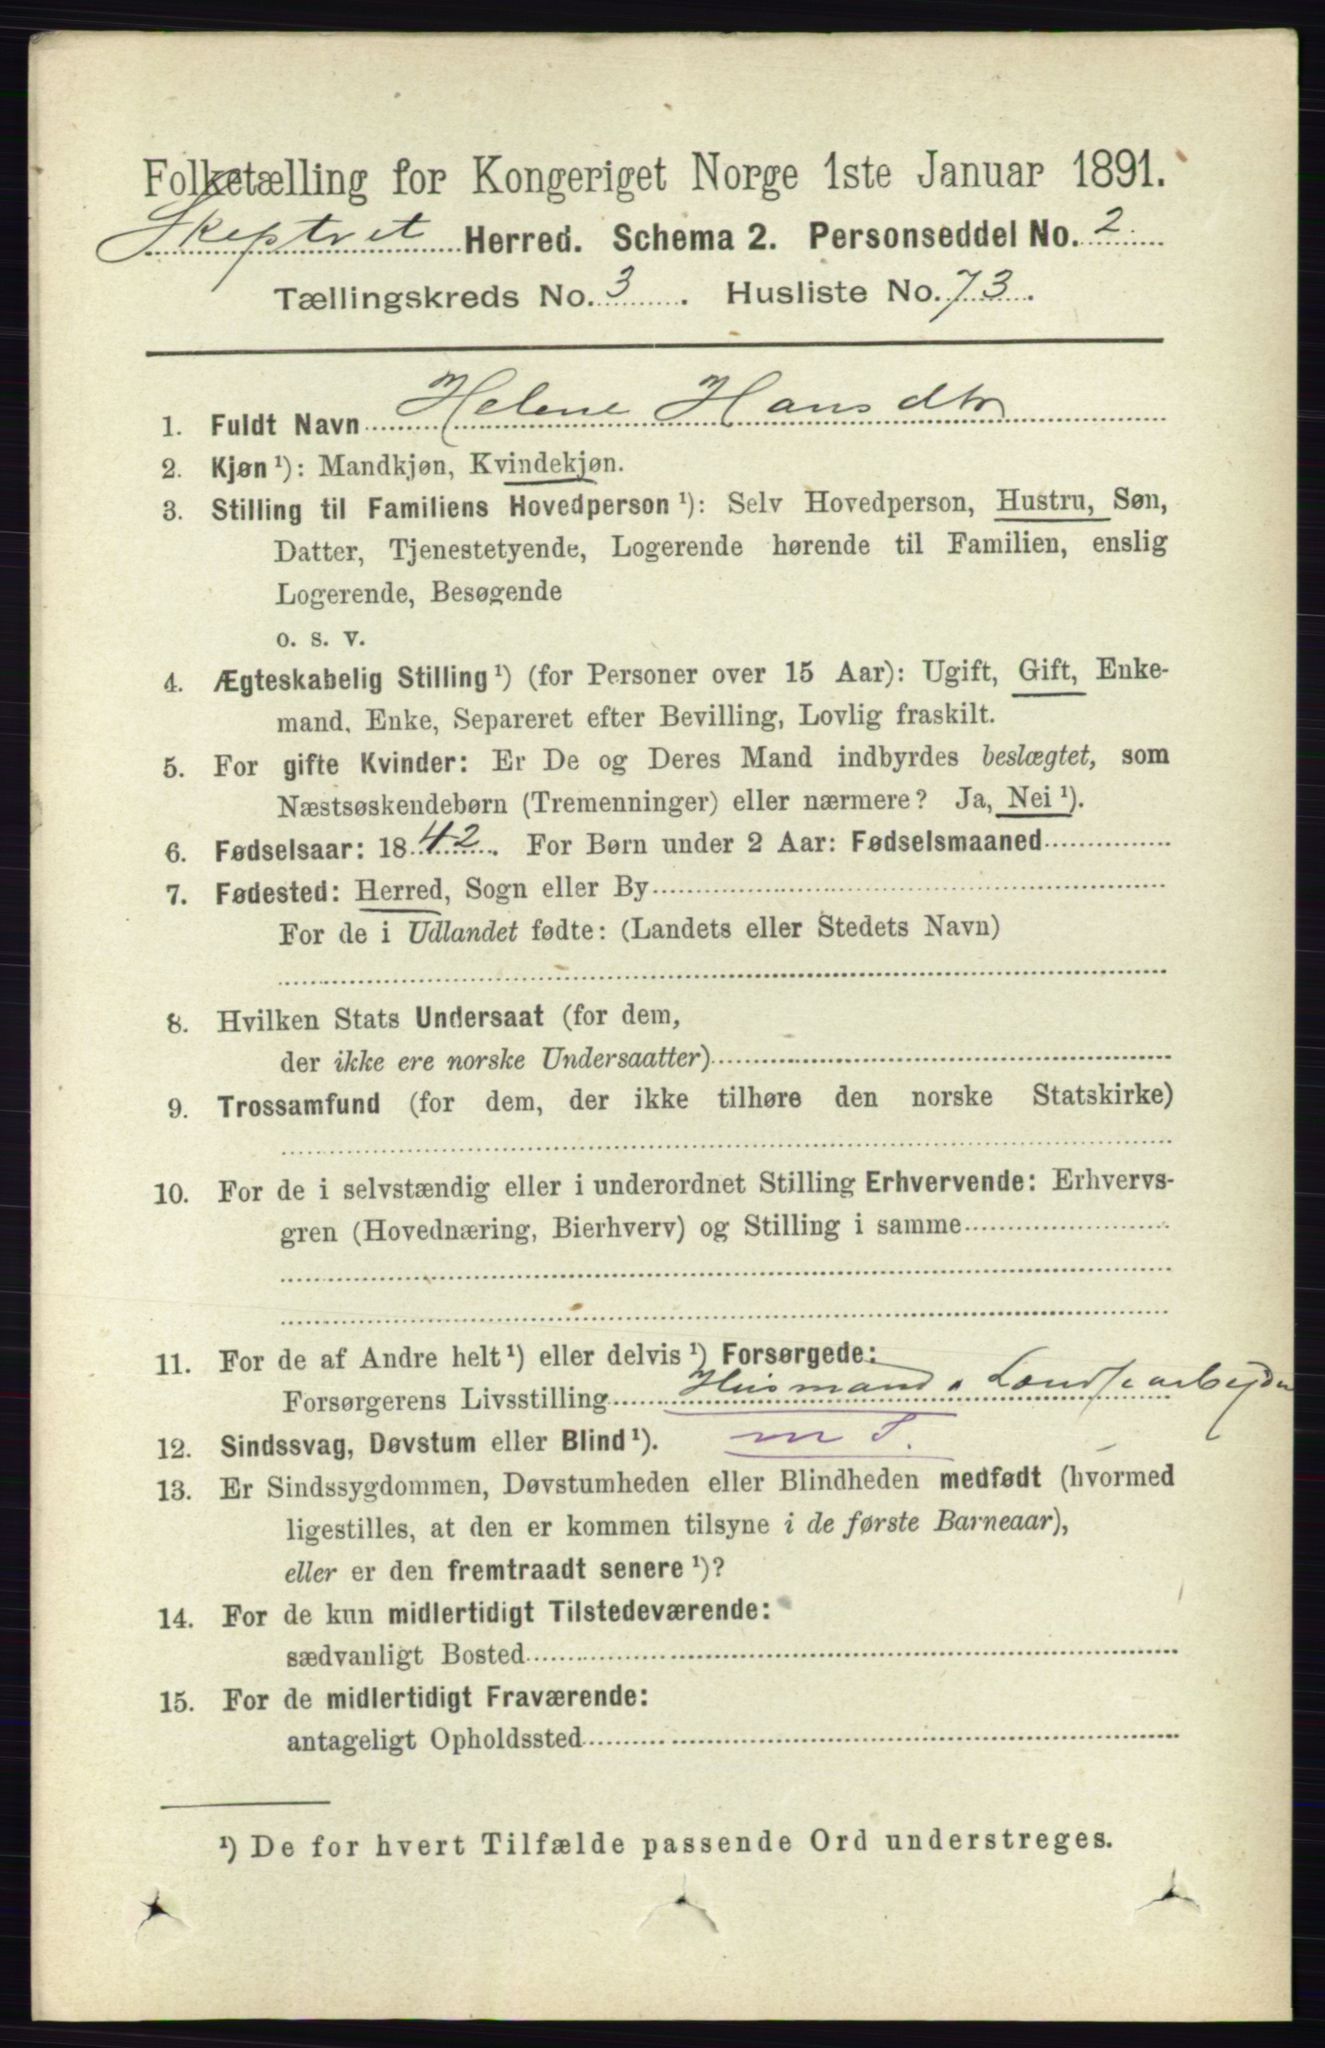 Folketælling for Kongeriget Norge 1ste Januar 1891.
Skeptvet Herred. Schema 2. Personseddel No. 2
Tællingskreds No. 3. Husliste No. 73.
1. Fuldt Navn Helene Hansdtr
2. Kjøn ¹): Mandkjøn, Kvindekjøn.
3. Stilling til Familiens Hovedperson ¹): Selv Hovedperson, Hustru, Søn,
Datter, Tjenestetyende, Logerende hørende til Familien, enslig
Logerende, Besøgende
o. s. v.
4. Ægteskabelig Stilling ¹) (for Personer over 15 Aar): Ugift, Gift, Enke-
mand, Enke, Separeret efter Bevilling, Lovlig fraskilt.
5. For gifte Kvinder: Er De og Deres Mand indbyrdes beslægtet, som
Næstsøskendebørn (Tremenninger) eller nærmere? Ja, Nei ¹).
6. Fødselsaar: 1842. For Børn under 2 Aar: Fødselsmaaned
7. Fødested: Herred, Sogn eller By
For de i Udlandet fødte: (Landets eller Stedets Navn)
8. Hvilken Stats Undersaat (for dem,
der ikke ere norske Undersaatter)
9. Trossamfund (for dem, der ikke tilhøre den norske Statskirke)
10. For de i selvstændig eller i underordnet Stilling Erhvervende: Erhvervs-
gren (Hovednæring, Bierhverv) og Stilling i samme
11. For de af Andre helt ¹) eller delvis ¹) Forsørgede:
Forsørgerens Livsstilling Husmand
12. Sindssvag, Døvstum eller Blind ¹). m J.
13. Er Sindssygdommen, Døvstumheden eller Blindheden medfødt (hvormed
ligestilles, at den er kommen tilsyne i de første Barneaar),
eller er den fremtraadt senere ¹)?
14. For de kun midlertidigt Tilstedeværende:
sædvanligt Bosted
15. For de midlertidigt Fraværende:
antageligt Opholdssted
¹) De for hvert Tilfælde passende Ord understreges.